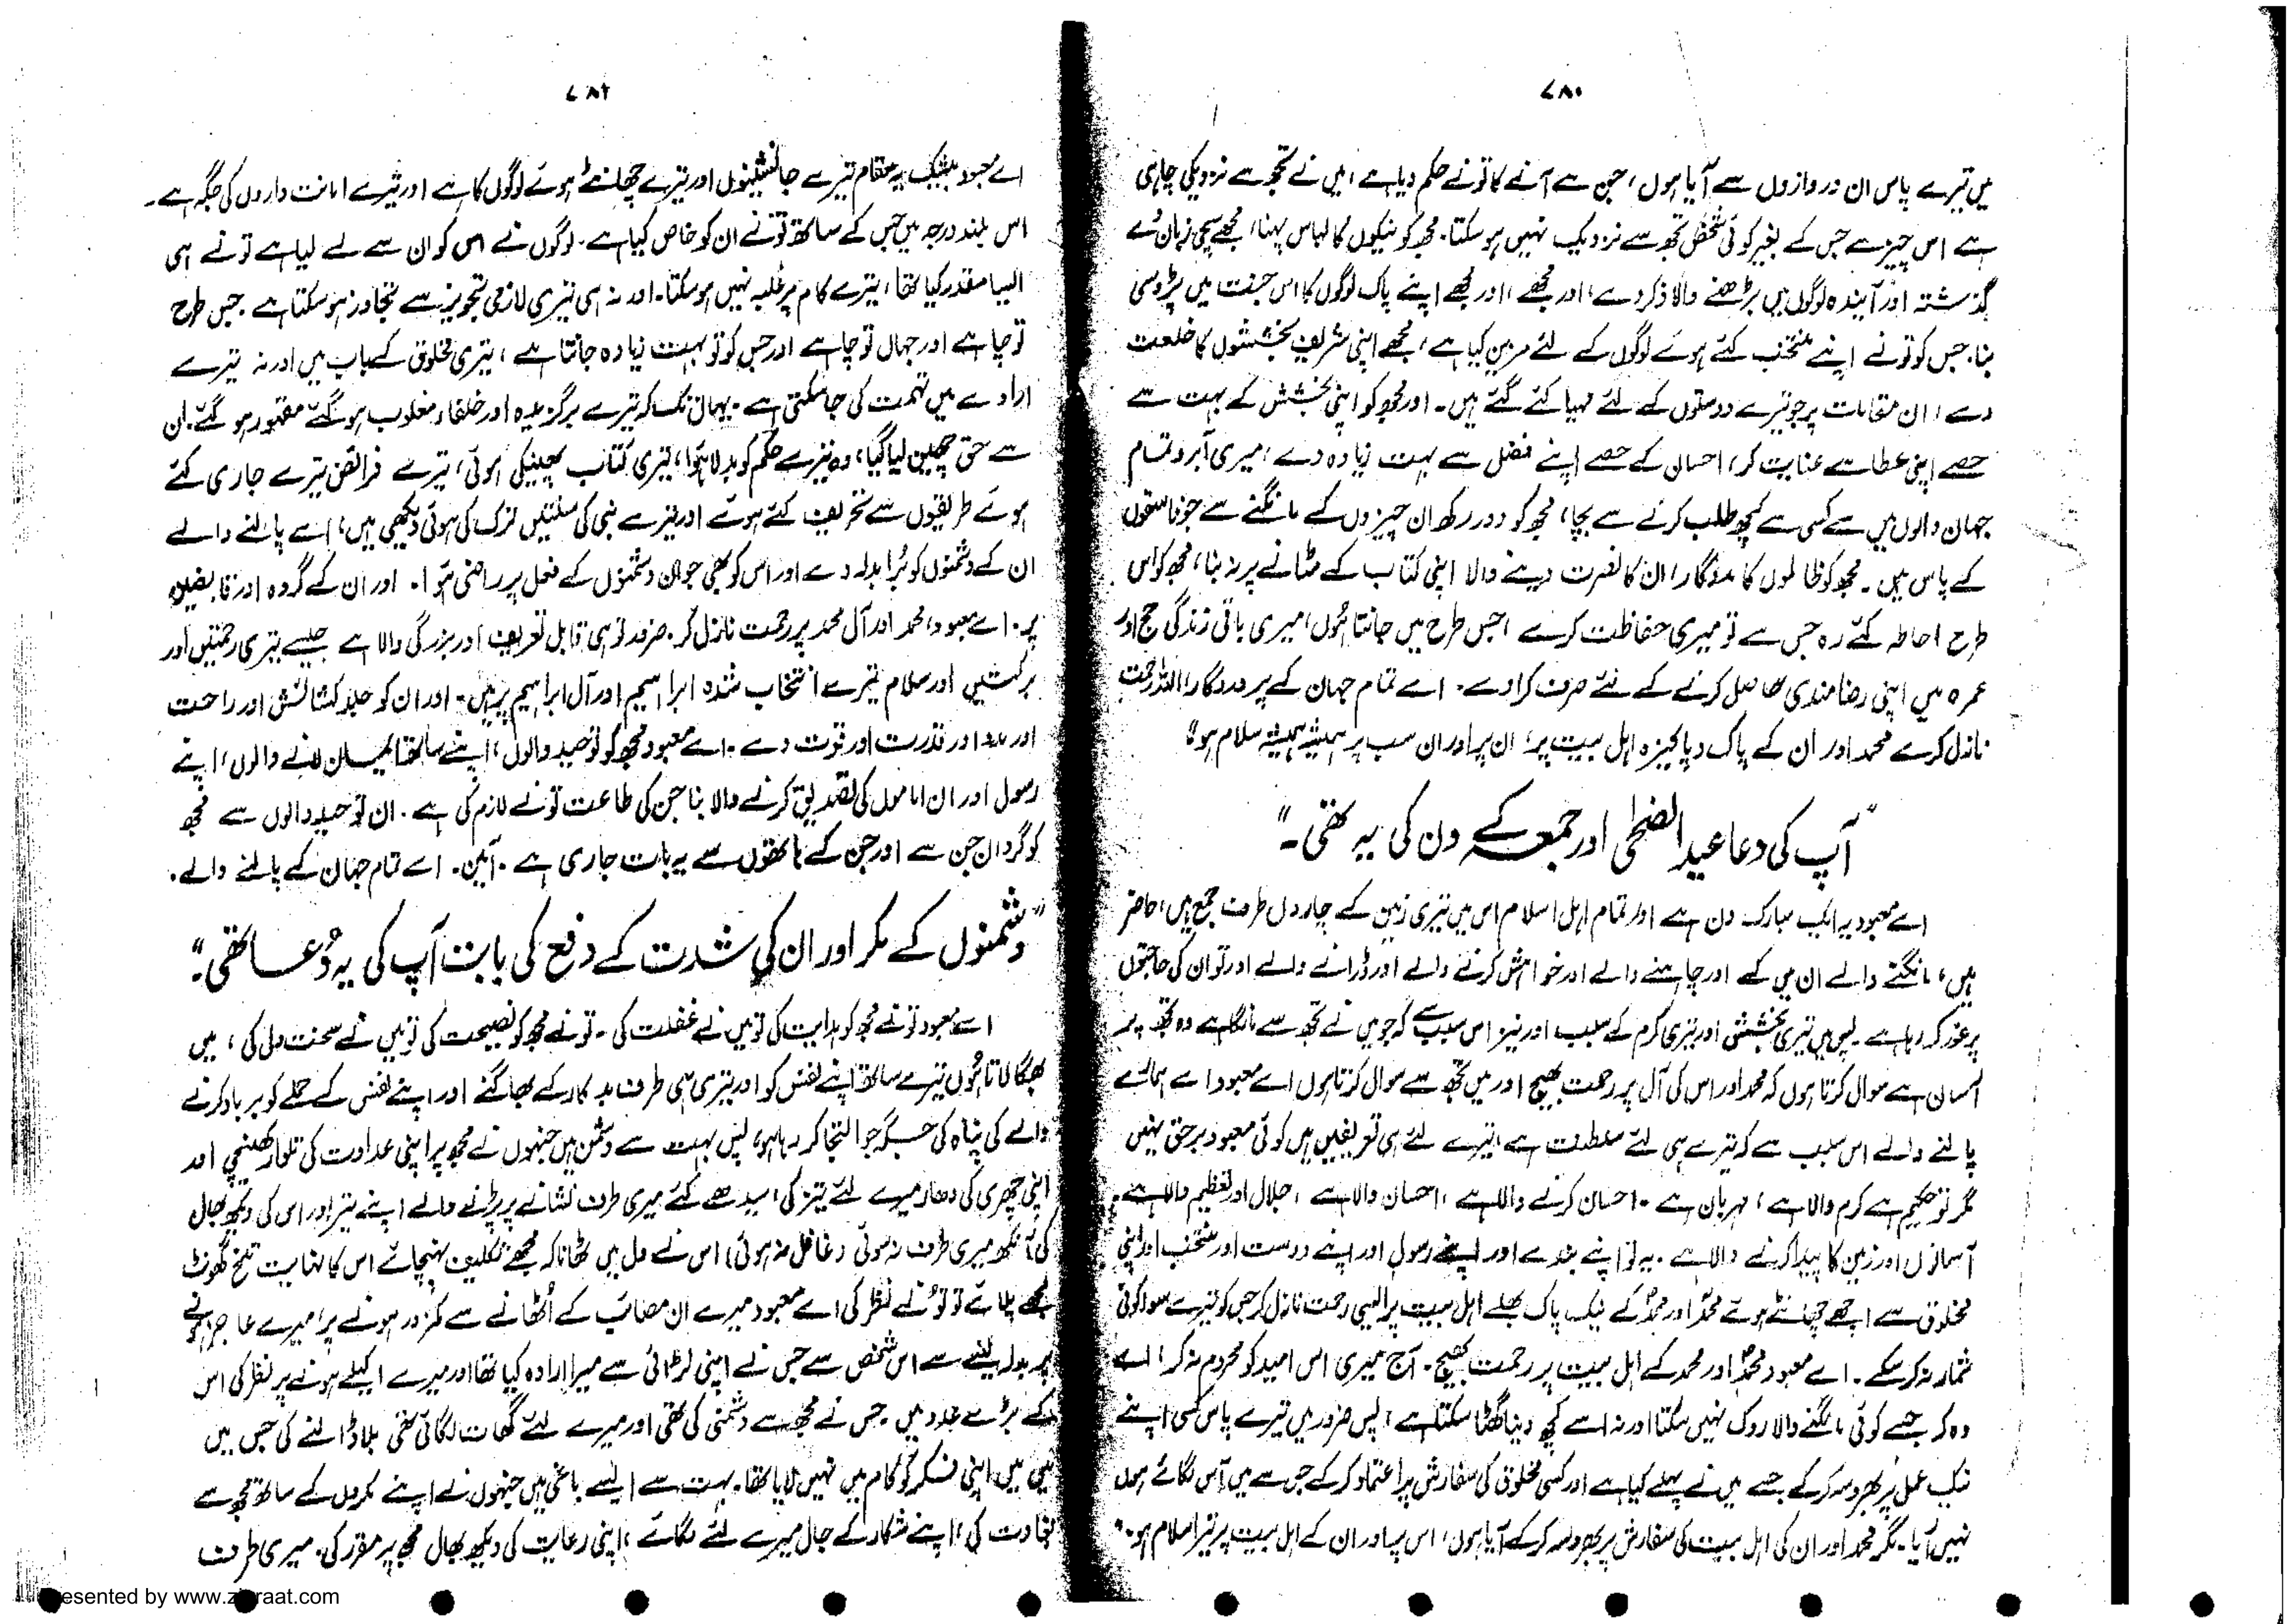 ۷۸۱
میں تیرے پاس ان دروازوں سے آیا ہوں، جن سے آنے کا تونے حکم دیا ہے، میں نے تجھ سے نزدیکی چاہی
ہے اس چیز سے جس کے بغیر کوئی شخص تجھ سے نزدیک نہیں ہو سکتا۔ مجھ کو نیکوں کا لباس پہنا، مجھے سچی زبان دے
گذشتہ اور آیندہ لوگوں میں بڑھنے والا ذکر دے، اور مجھے، اور مجھے اپنے پاک لوگوں کا اس جنت میں پڑوسی
بنا، جس کو تونے اپنے منتخب کئے ہوئے لوگوں کے لئے مزین کیا ہے، مجھے اپنی شریف بخششوں کا خلعت
دے، ان مقامات پر جو تیرے دوستوں کے لئے مہیا کئے گئے ہیں۔ اور مجھ کو اپنی بخشش کے بہت سے
حصے اپنی عطا سے عنایت کر، احسان کے حصے اپنے فضل سے بہت زیادہ دے، میری آبرو تمام
جہان والوں میں سے کسی سے کچھ طلب کرنے سے بچا، مجھ کو دور رکھ ان چیزوں کے مانگنے سے جو فاسقوں
کے پاس ہیں۔ مجھ کو ظالموں کا مددگار، ان کا نصرت دینے والا اپنی کتاب کے مٹانے پر نہ بنا، مجھ کو اس
طرح احاطہ کئے رہ جس سے تو میری حفاظت کرے، جس طرح میں جانتا ہوں، میری باقی زندگی حج اور
عمرہ میں اپنی رضامندی حاصل کرنے کے لئے صرف کرادے۔ اے تمام جہان کے پروردگار، اللہ رحمت
نازل کرے محمد اور ان کے پاک و پاکیزہ اہل بیت پر، ان پر اور ان سب پر ہمیشہ ہمیشہ سلام ہو"
"آپ کی دعا عید الضحیٰ اور جمعہ کے دن کی یہ تھی۔"
اے معبود یہ ایک مبارک دن ہے اور تمام اہل اسلام اس میں تیری زمین کے چاروں طرف جمع ہیں، حاضر
ہیں، مانگنے والے ان میں کے اور چاہنے والے اور خواہش کرنے والے اور ڈرانے والے اور تو ان کی حاجتوں
پر غور کر رہا ہے۔ پس میں تیری بخشش اور تیری کرم کے سبب اور نیز اس سبب سے کہ جو میں نے تجھ سے مانگا ہے وہ تجھ پر
آسان ہے سوال کرتا ہوں کہ محمد اور اس کی آل پر رحمت بھیج اور میں تجھ سے سوال کرتا ہوں اے معبود اے ہمارے
پالنے والے اس سبب سے کہ تیرے ہی لئے سلطنت ہے، تیرے لئے ہی تعریفیں ہیں کوئی معبود برحق نہیں
مگر تو حکیم ہے کرم والا ہے، مہربان ہے۔ احسان کرنے والا ہے، احسان والا ہے، جلال اور تعظیم والا ہے
آسمانوں اور زمین کا پیدا کرنے والا ہے۔ یہ تو اپنے بندے اور اپنے رسول اور اپنے دوست اور منتخب اور اپنی
مخلوق سے اچھے چھانٹے ہوئے محمدؐ اور محمدؐ کے نیک پاک بھلے اہل بیت پر ایسی رحمت نازل کر جس کو تیرے سوا کوئی
شمار نہ کر سکے۔ اے معبود محمدؐ اور محمد کے اہل بیت پر رحمت بھیج۔ آج میری اس امید کو محروم نہ کر، اے
وہ کہ جسے کوئی مانگنے والا روک نہیں سکتا اور نہ اسے کچھ دینا گھٹا سکتا ہے، پس ضرور میں تیرے پاس کسی اپنے
نیک عمل پر بھروسہ کرکے جسے میں نے پہلے کیا ہے اور کسی مخلوق کی سفارش پر اعتماد کرکے جس سے میں آس لگائے ہوں
نہیں آیا۔ مگر محمد اور ان کی اہل بیت کی سفارش پر بھروسہ کرکے آیا ہوں، اس پر اور ان کے اہل بیت پر تیرا سلام ہو۔"
۷۸۲
اے معبود بیشک یہ مقام تیرے جانشینوں اور تیرے چھانٹے ہوئے لوگوں کا ہے اور تیرے امانت داروں کی جگہ ہے۔
اس بلند درجہ میں جس کے ساتھ تونے ان کو خاص کیا ہے۔ لوگوں نے اس کو ان سے لے لیا ہے تونے ہی
ایسا مقدر کیا تھا، تیرے کام پر غلبہ نہیں ہو سکتا۔ اور نہ ہی تیری لازمی تجویز سے تجاوز ہو سکتا ہے۔ جس طرح
تو چاہے اور جہاں تو چاہے اور جس کو تو بہت زیادہ جانتا ہے، تیری مخلوق کے باب میں اور نہ تیرے
ارادے میں تہمت کی جا سکتی ہے۔ یہاں تک کہ تیرے برگزیدہ اور خلفاء مغلوب ہو گئے مقہور ہو گئے۔ ان
سے حق چھین لیا گیا، وہ تیرے حکم کو بدلا ہوا، تیری کتاب پھینکی ہوئی، تیرے فرائض تیرے جاری کئے
ہوئے طریقوں سے تحریف کئے ہوئے اور تیرے نبی کی سنتیں ترک کی ہوئی دیکھی ہیں، اے پالنے والے
ان کے دشمنوں کو برا بدلہ دے اور اس کو بھی جو ان دشمنوں کے فعل پر راضی ہوا۔ اور ان کے گروہ اور تابعین
پر۔ اے معبود، محمد اور آل محمد پر رحمت نازل کر۔ ضرور تو ہی قابل تعریف اور بزرگی والا ہے جیسے تیری رحمتیں اور
برکتیں اور سلام تیرے انتخاب شدہ ابراہیم اور آل ابراہیم پر ہیں۔ اور ان کو جلد کشائش اور راحت
اور مدد اور قدرت اور قوت دے۔ اے معبود مجھ کو توحید والوں، اپنے ساتھ ایمان لانے والوں، اپنے
رسول اور ان اماموں کی تصدیق کرنے والا بنا جن کی طاعت تونے لازم کی ہے۔ ان توحید والوں سے مجھ
کو گردان جن سے اور جن کے ہاتھوں سے یہ بات جاری ہے۔ آمین۔ اے تمام جہان کے پالنے والے۔
"دشمنوں کے مکر اور ان کی شدت کے دفع کی بابت آپ کی یہ دُعا تھی۔"
اے معبود تونے مجھ کو ہدایت کی تو میں نے غفلت کی۔ تونے مجھ کو نصیحت کی تو میں نے سخت دلی کی، میں
بھگا لاتا ہوں تیرے ساتھ اپنے نفس کو اور تیری ہی طرف بدکار کے بھاگنے اور اپنے نفس کے حملے کو برباد کرنے
والے کی پناہ کی جگہ جو التجا کر رہا ہو، پس بہت سے دشمن ہیں جنہوں نے مجھ پر اپنی عداوت کی تلوار کھینچی اور
اپنی چھری کی دھار میرے لئے تیز کی، سیدھے کئے میری طرف نشانے پر پڑنے والے اپنے تیر اور اس کی دیکھ بھال
کی آنکھ میری طرف نہ سوئی (غافل نہ ہوئی) اس نے دل میں ٹھانا کہ مجھے تکلیف پہنچائے اس کا نہایت تلخ گھونٹ
مجھے پلائے تو تُو نے نظر کی اے معبود میرے ان مصائب کے اُٹھانے سے کمزور ہونے پر، میرے عاجز ہونے
پر بدلہ لینے سے اس شخص سے جس نے اپنی لڑائی سے میرا ارادہ کیا تھا اور میرے اکیلے ہونے پر نظر کی اس
کے بڑے عدد میں۔ جس نے مجھ سے دشمنی کی تھی اور میرے لئے گھات لگائی تھی بلا ڈالنے کی جس میں
میں اپنی فکر کو کام میں نہیں لایا تھا۔ بہت سے ایسے باغی ہیں جنہوں نے اپنے مکروں کے ساتھ مجھ سے
بغاوت کی، اپنے شکار کے جال میرے لئے لگائے، اپنی رعایت کی دیکھ بھال مجھ پر مقرر کی۔ میری طرف
esented by www.ziaraat.com